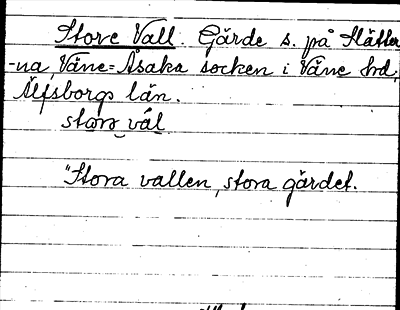 Store Vall. Gärde s. på Slätter
-na, Väne-Åsaka socken i Väne hd,
Älfsborgs län.
storə vál
"Stora vallen, stora gärdet.